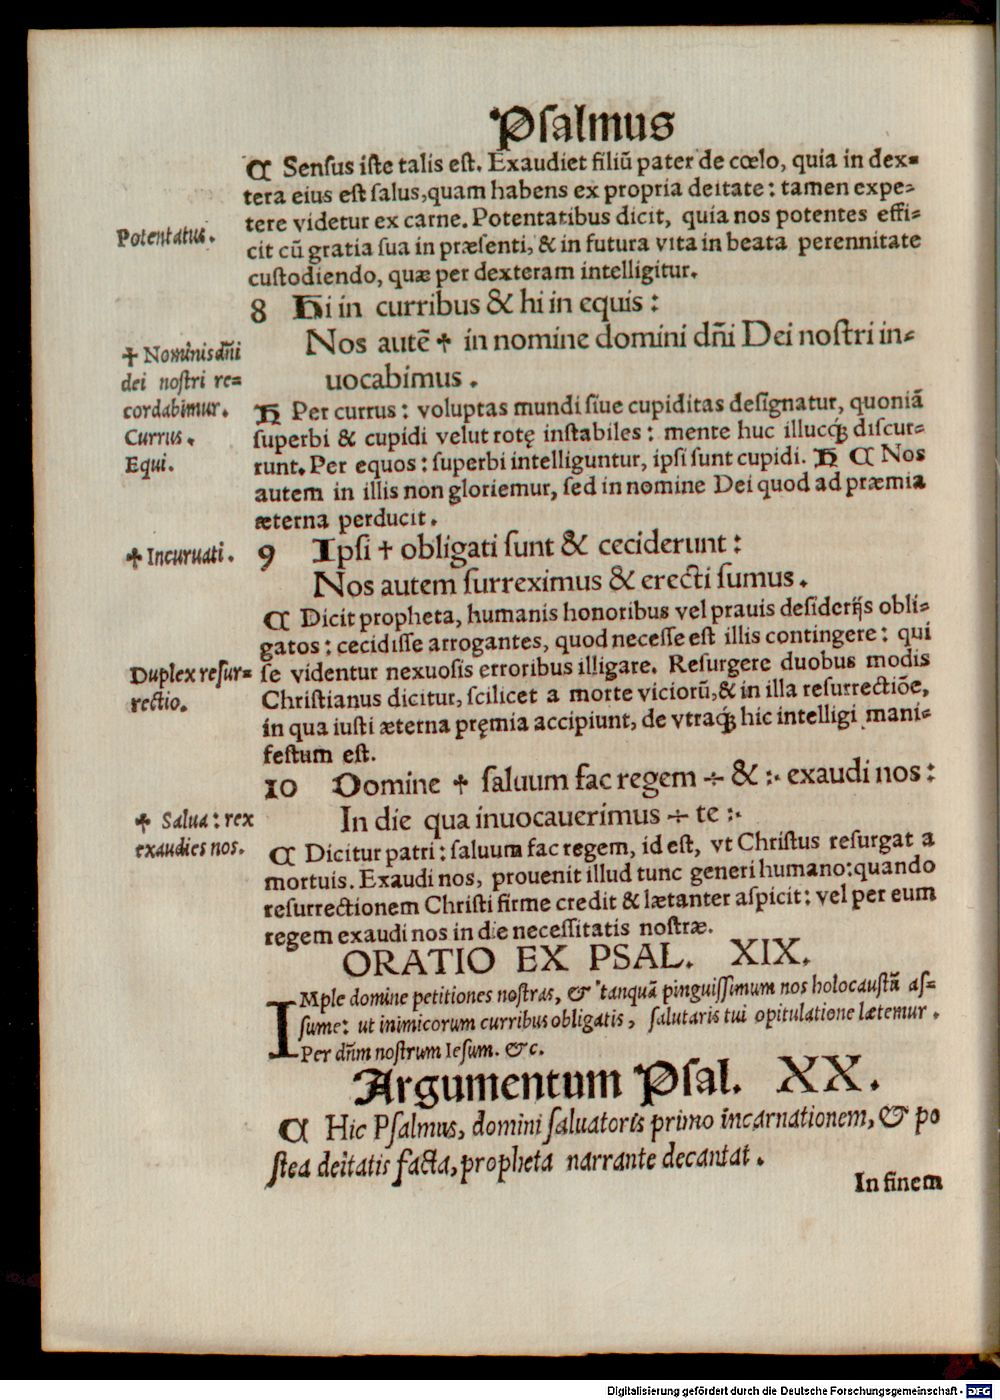 Psalmus
C Sensus iste talis est. Exaudiet filiū pater de cœlo, quia in dex-
tera eius est salus, quam habens ex propria deitate: tamen expe-
tere videtur ex carne. Potentatibus dicit, quia nos potentes effi-
Potentatus.
cit cū gratia sua in præsenti, & in futura vita in beata perennitate
custodiendo, quæ per dexteram intelligitur.
8 Hi in curribus & hi in equis:
Nos autē ✢ in nomine domini dñi Dei nostri in-
uocabimus.
✢ Nominis dñi
dei nostri re-
cordabimur.
Currus.
Equi.
H Per currus: voluptas mundi siue cupiditas designatur, quoniā
superbi & cupidi velut rotę instabiles: mente huc illucq; discur-
runt. Per equos: superbi intelliguntur, ipsi sunt cupidi. H C Nos
autem in illis non gloriemur, sed in nomine Dei quod ad præmia
æterna perducit.
✢ Incuruati.
9 Ipsi ✝ obligati sunt & ceciderunt:
Nos autem surreximus & erecti sumus.
C Dicit propheta, humanis honoribus vel prauis desiderijs obli-
gatos: cecidisse arrogantes, quod necesse est illis contingere: qui
Duplex resur-
rectio.
se videntur nexuosis erroribus illigare. Resurgere duobus modis
Christianus dicitur, scilicet a morte viciorū, & in illa resurrectiōe,
in qua iusti æterna pręmia accipiunt, de vtraq; hic intelligi mani-
festum est.
10 Domine ✢ saluum fac regem ÷ & :· exaudi nos:
In die qua inuocauerimus ÷ te :·
✢ Salua: rex
exaudies nos.
C Dicitur patri: saluum fac regem, id est, vt Christus resurgat a
mortuis. Exaudi nos, prouenit illud tunc generi humano: quando
resurrectionem Christi firme credit & lætanter aspicit: vel per eum
regem exaudi nos in die necessitatis nostræ.
ORATIO EX PSAL. XIX.
IMple domine petitiones nostras, & tanquā pinguissimum nos holocaustā as-
sume: ut inimicorum curribus obligatis, salutaris tui opitulatione lætemur.
Per dñm nostrum Iesum. &c.
Argumentum Psal. XX.
C Hic Psalmus, domini saluatoris primo incarnationem, & po
stea deitatis facta, propheta narrante decantat.
In finem
Digitalisierung gefördert durch die Deutsche Forschungsgemeinschaft - DFG